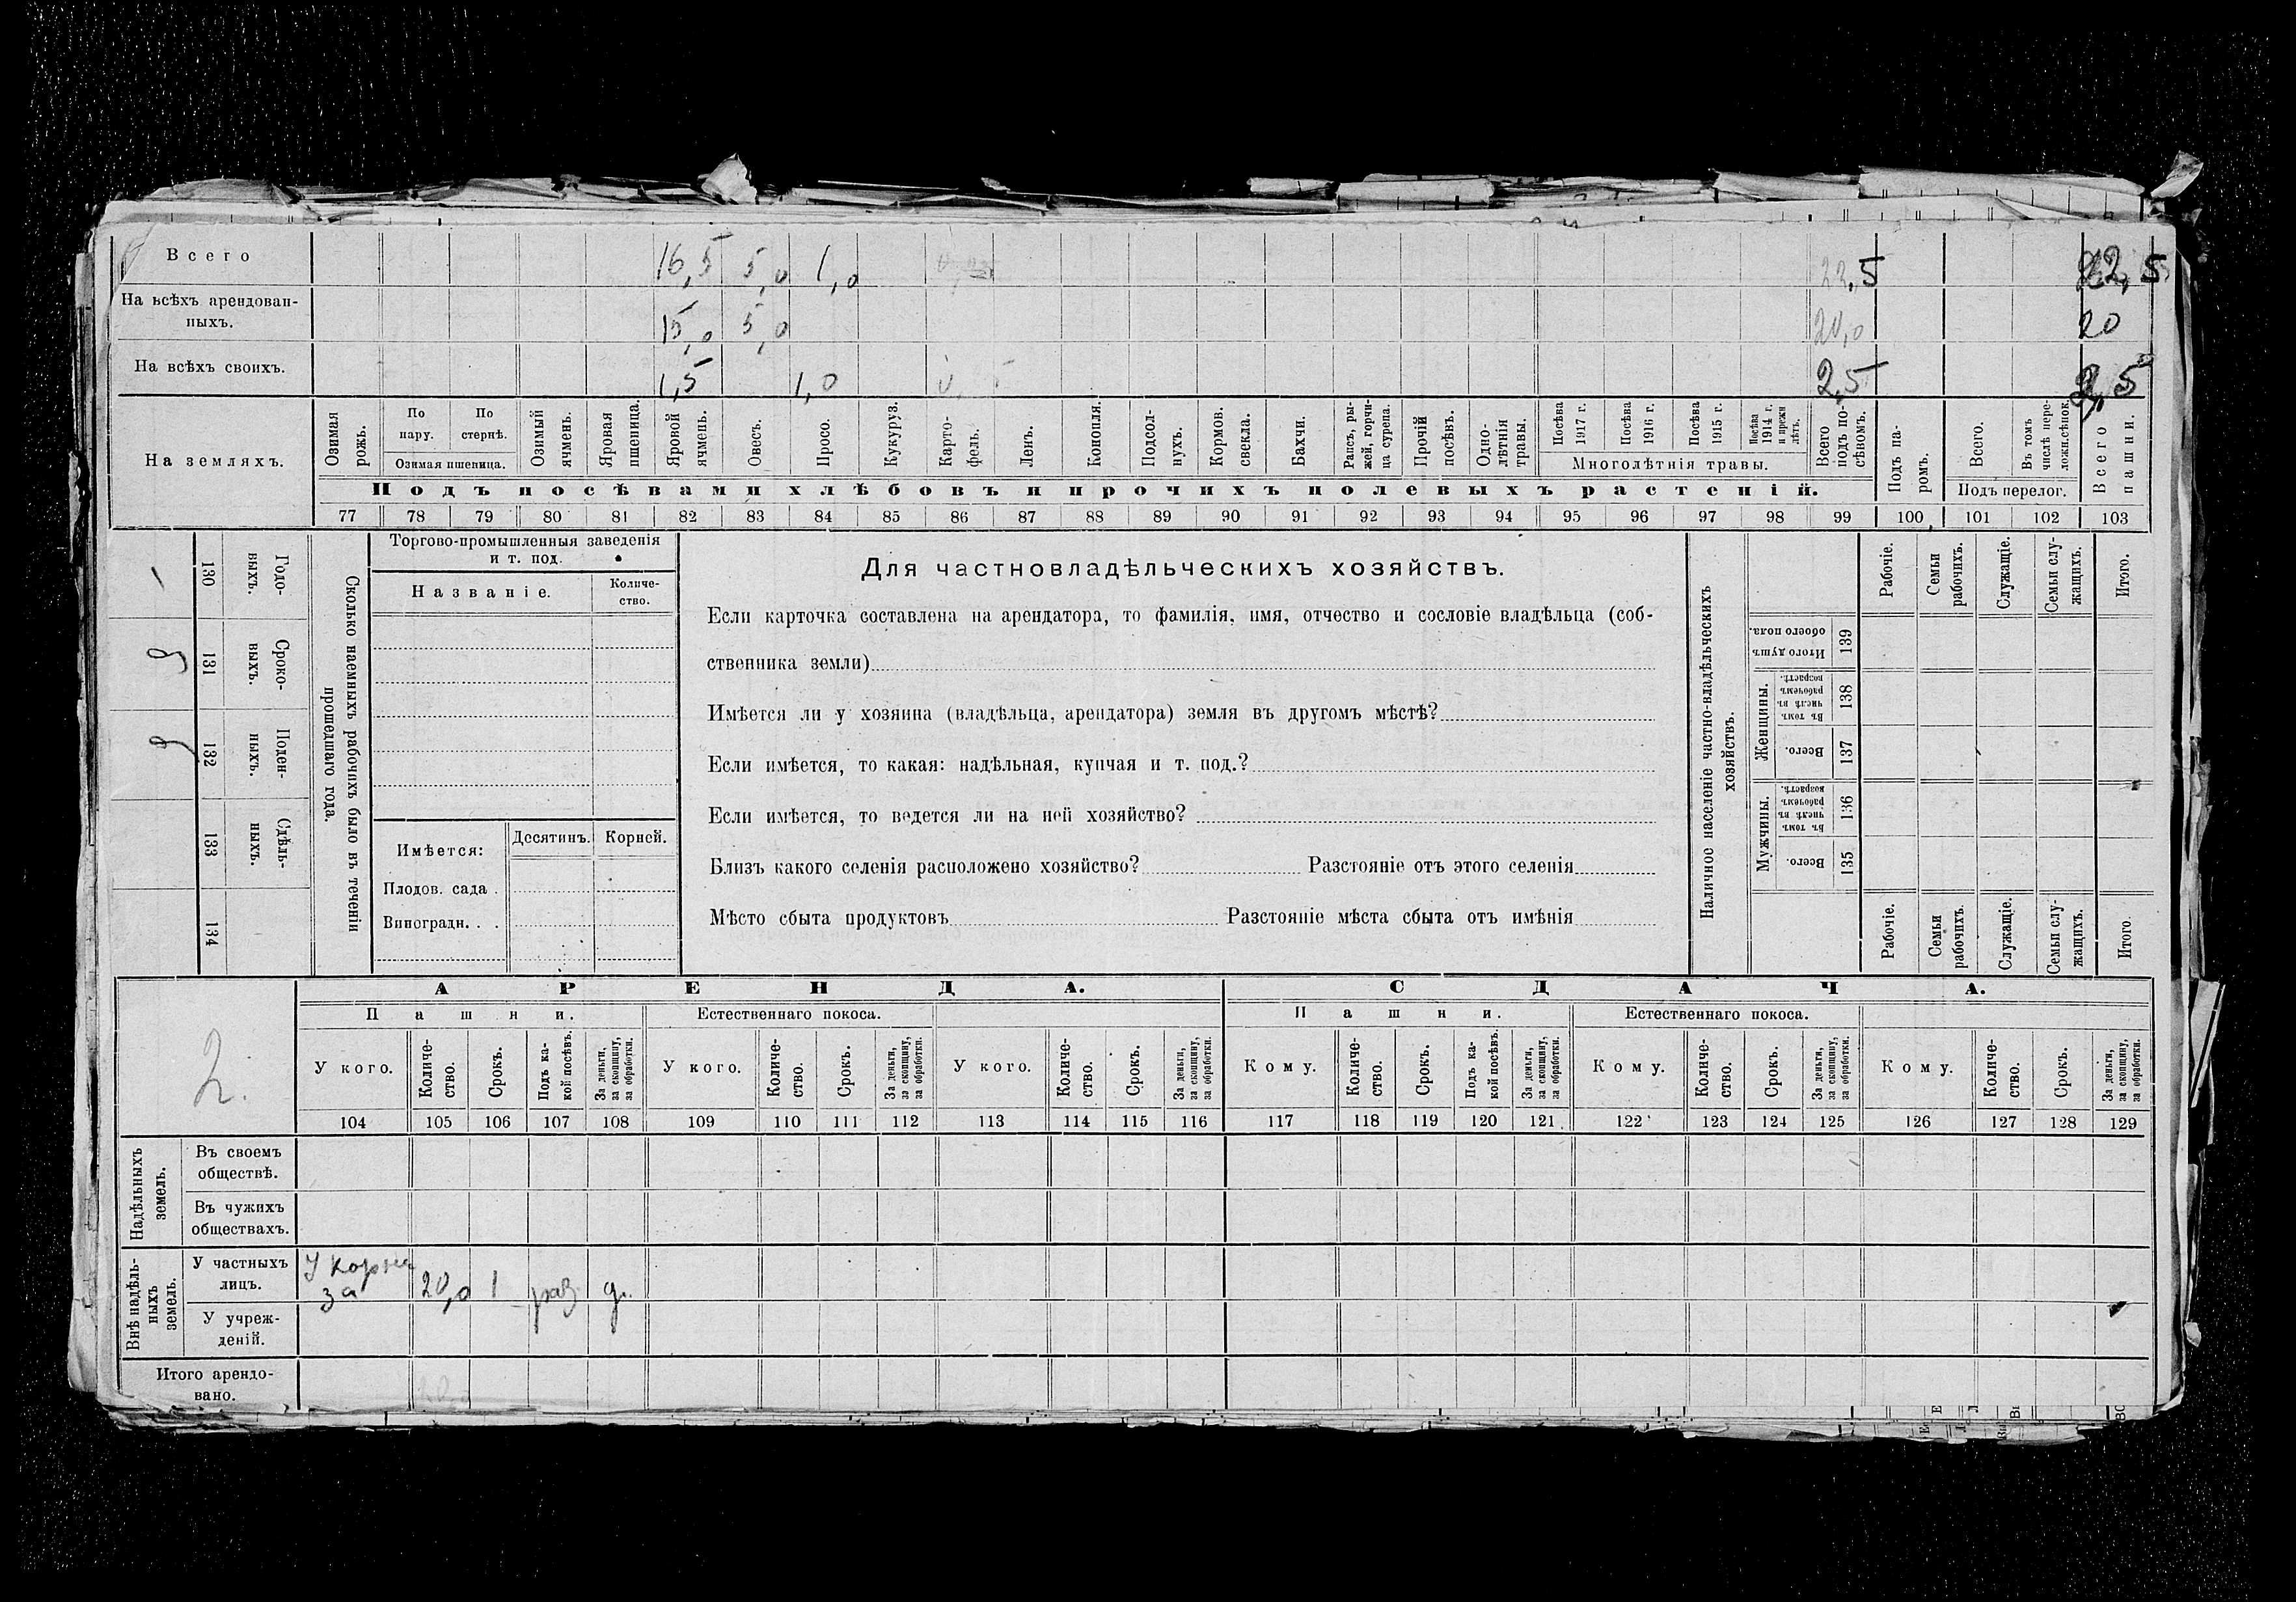 Всего 16,5 5,0 1,0 22,5 22,5
На всѣхъ арендован-
ныхъ. 15,0 5,0 20,0 20
На всѣхъ своихъ. 1,5 1,0 2,5 2,5
На земляхъ.
Озимая рожь.
По пару.
По стернѣ.
Озимая пшеница.
Озимый ячмень.
Яровая пшеница.
Яровой ячмень.
Овесъ.
Просо.
Кукуруз.
Карто-
фель.
Ленъ.
Конопля.
Подсол-
нухъ.
Кормов.
свекла.
Бахчи.
Рапсъ, ры-
жей, горчи-
ца сурепа.
Прочій
посѣвъ.
Одно-
лѣтнія
травы.
Посѣва
1917 г.
Посѣва
1916 г.
Посѣва
1915 г.
Посѣва
1914 г.
и прежн
лѣтъ.
Многолѣтнія травы.
Всего
подъ по-
сѣвомъ.
Подъ па-
ромъ.
Всего.
Въ томъ
числѣ пере-
ложн.сѣнок.
Подъ перелог.
Всего
пашни.
Подъ посѣвами хлѣбовъ и прочихъ полевыхъ растеній.
77 78 79 80 81 82 83 84 85 86 87 88 89 90 91 92 93 94 95 96 97 98 99 100 101 102 103
Годо-
выхъ.
130
Сроко-
выхъ.
131
Поден-
ныхъ.
132
Сдѣль-
ныхъ.
133
134
Сколько наемныхъ рабочихъ было въ теченіи
прошедшаго года.
Торгово-промышленныя заведенія
и т. под.
Названіе.
Количе-
ство.
Имѣется:
Десятинъ.
Корней.
Плодов. сада .
Виноградн. . .
Для частновладѣльческихъ хозяйствъ.
Если карточка составлена на арендатора, то фамилія, имя, отчество и сословіе владѣльца (соб-
ственника земли)
Имѣется ли у хозяина (владѣльца, арендатора) земля въ другомъ мѣстѣ?
Если имѣется, то какая: надѣльная, купчая и т. под.?
Если имѣется, то ведется ли на ней хозяйство?
Близъ какого селенія расположено хозяйство? Разстояніе отъ этого селенія
Мѣсто сбыта продуктовъ Разстояніе мѣста сбыта отъ имѣнія
Наличное населеніе частно-владѣльческихъ
хозяйствъ.
Рабочіе.
Семьи
рабочихъ.
Служащіе.
Семьи слу-
жащихъ.
Итого.
Итого душъ
обоего пола.
139
Женщины.
Въ томъ
числѣ въ
рабочемъ
возрастѣ.
138
Всего.
137
Мужчины.
Въ томъ
числѣ въ
рабочемъ
возрастѣ.
136
Всего.
135
Рабочіе.
Семьи
рабочихъ.
Служащіе.
Семьи слу-
жащихъ.
Итого.
2.
АРЕНДА.
СДАЧА.
Пашни.
Естественнаго покоса.
Пашни.
Естественнаго покоса.
У кого.
Количе-
ство.
Срокъ.
Подъ ка-
кой посѣвъ.
За деньги,
за скопщину,
за обработки.
У кого.
Количе-
ство.
Срокъ.
За деньги,
за скопщину,
за обработки.
У кого.
Количе-
ство.
Срокъ.
За деньги,
за скопщину,
за обработки.
Кому.
Количе-
ство.
Срокъ.
Подъ ка-
кой посѣвъ.
За деньги,
за скопщину,
за обработки.
Кому.
Количе-
ство.
Срокъ.
За деньги,
за скопщину,
за обработки.
Кому.
Количе-
ство.
Срокъ.
За деньги,
за скопщину,
за обработки.
104 105 106 107 108 109 110 111 112 113 114 115 116 117 118 119 120 121 122 123 124 125 126 127 128 129
Надѣльныхъ
земель.
Въ своемъ
обществѣ.
Въ чужихъ
обществахъ.
Внѣ надѣль-
ныхъ
земель.
У частныхъ
лицъ. 20,0 1 раз д.
У учреж-
деній.
Итого арендо-
вано.